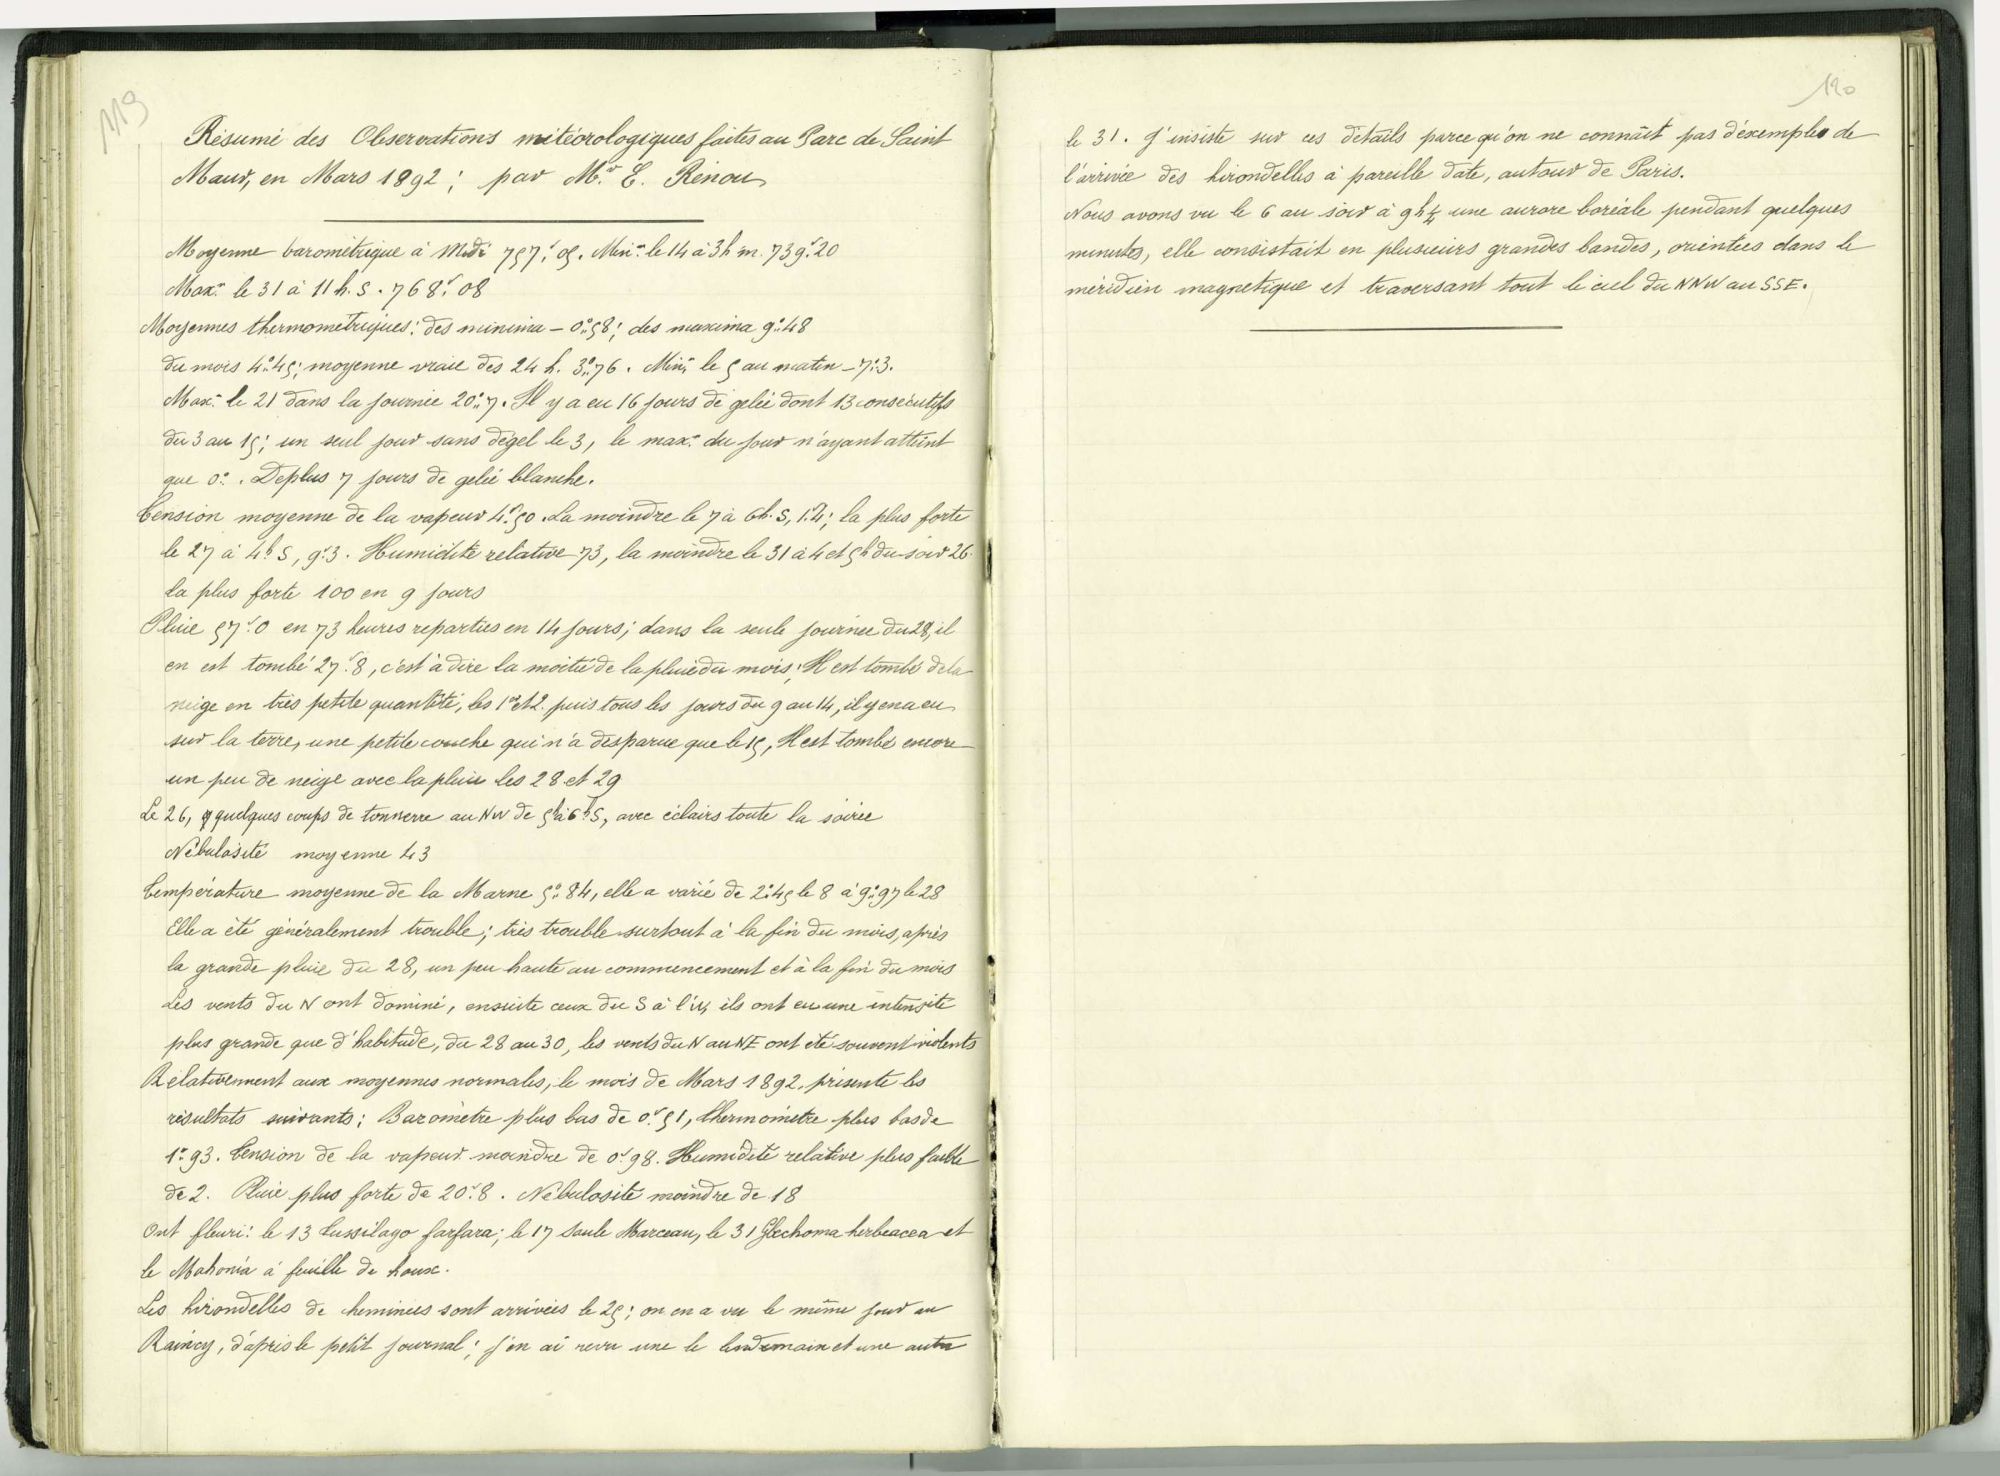 119
Résumé des Observations météorologiques faites au Parc de Saint
Maur, en Mars 1892 ; par Mr. E. Renou
Moyenne barométrique à Midi 757,05. Min. le 14 à 3h m. 739,20
Max. le 31 à 11h. S. 768,08
Moyennes thermométriques: des minima – 0°,58; des maxima 9°,48
du mois 4°,45; moyenne vraie des 24 h. 3°,76. Min. le 5 au matin – 7°,3.
Max. le 21 dans la journée 20°,7. Il y a eu 16 jours de gelée dont 13 consécutifs
du 3 au 15; un seul jour sans dégel le 3, le max. du jour n'ayant atteint
que 0°. De plus 7 jours de gelée blanche.
Tension moyenne de la vapeur 4,50. La moindre le 7 à 6h. S, 1,4; la plus forte
le 27 à 4h S, 9,3. Humidité relative 73, la moindre le 31 à 4 et 5h du soir 26.
la plus forte 100 en 9 jours
Pluie 57,0 en 73 heures reparties en 14 jours; dans la seule journée du 28, il
en est tombé 27,8, c'est à dire la moitié de la pluie du mois; Il est tombé de la
neige en très petite quantité, les 1er et 2. puis tous les jours du 9 au 14, il y en a eu
sur la terre, une petite couche qui n'a disparue que le 15, Il est tombé encore
un peu de neige avec la pluie les 28 et 29
Le 26, quelques coups de tonnerre au NW de 5h à 6h S, avec éclairs toute la soirée
Nébulosité moyenne 43
Température moyenne de la Marne 5°,84, elle a varié de 2°,45 le 8 à 9°,97 le 28
Elle a été généralement trouble; très trouble surtout à la fin du mois, après
la grande pluie du 28, un peu haute au commencement et à la fin du mois
Les vents du N ont dominé, ensuite ceux du S à l'W, ils ont eu une intensité
plus grande que d'habitude, du 28 au 30, les vents du N au NE ont été souvent violents
Relativement aux moyennes normales, le mois de Mars 1892. présente les
résultats suivants: Baromètre plus bas de 0,51, thermomètre plus bas de
1°,93. Tension de la vapeur moindre de 0,98. Humidité relative plus faible
de 2. Pluie plus forte de 20,8. Nébulosité moindre de 18
Ont fleuri: le 13 Tussilago farfara; le 17 Saule Marceau, le 31 Glechoma herbeacea et
le Mahonia à feuille de houx.
Les hirondelles de cheminées sont arrivées le 25; on en a vu le même jour au
Raincy, d'après le petit journal; j'en ai revu une le lendemain et une autre
120
le 31. J'insiste sur ces détails parce qu'on ne connaît pas d'exemple de
l'arrivée des hirondelles à pareille date, autour de Paris.
Nous avons vu le 6 au soir à 9h ¼ une aurore boréale pendant quelques
minutes, elle consistait en plusieurs grandes bandes, orientées dans le
méridien magnétique et traversant tout le ciel du NNW au SSE.